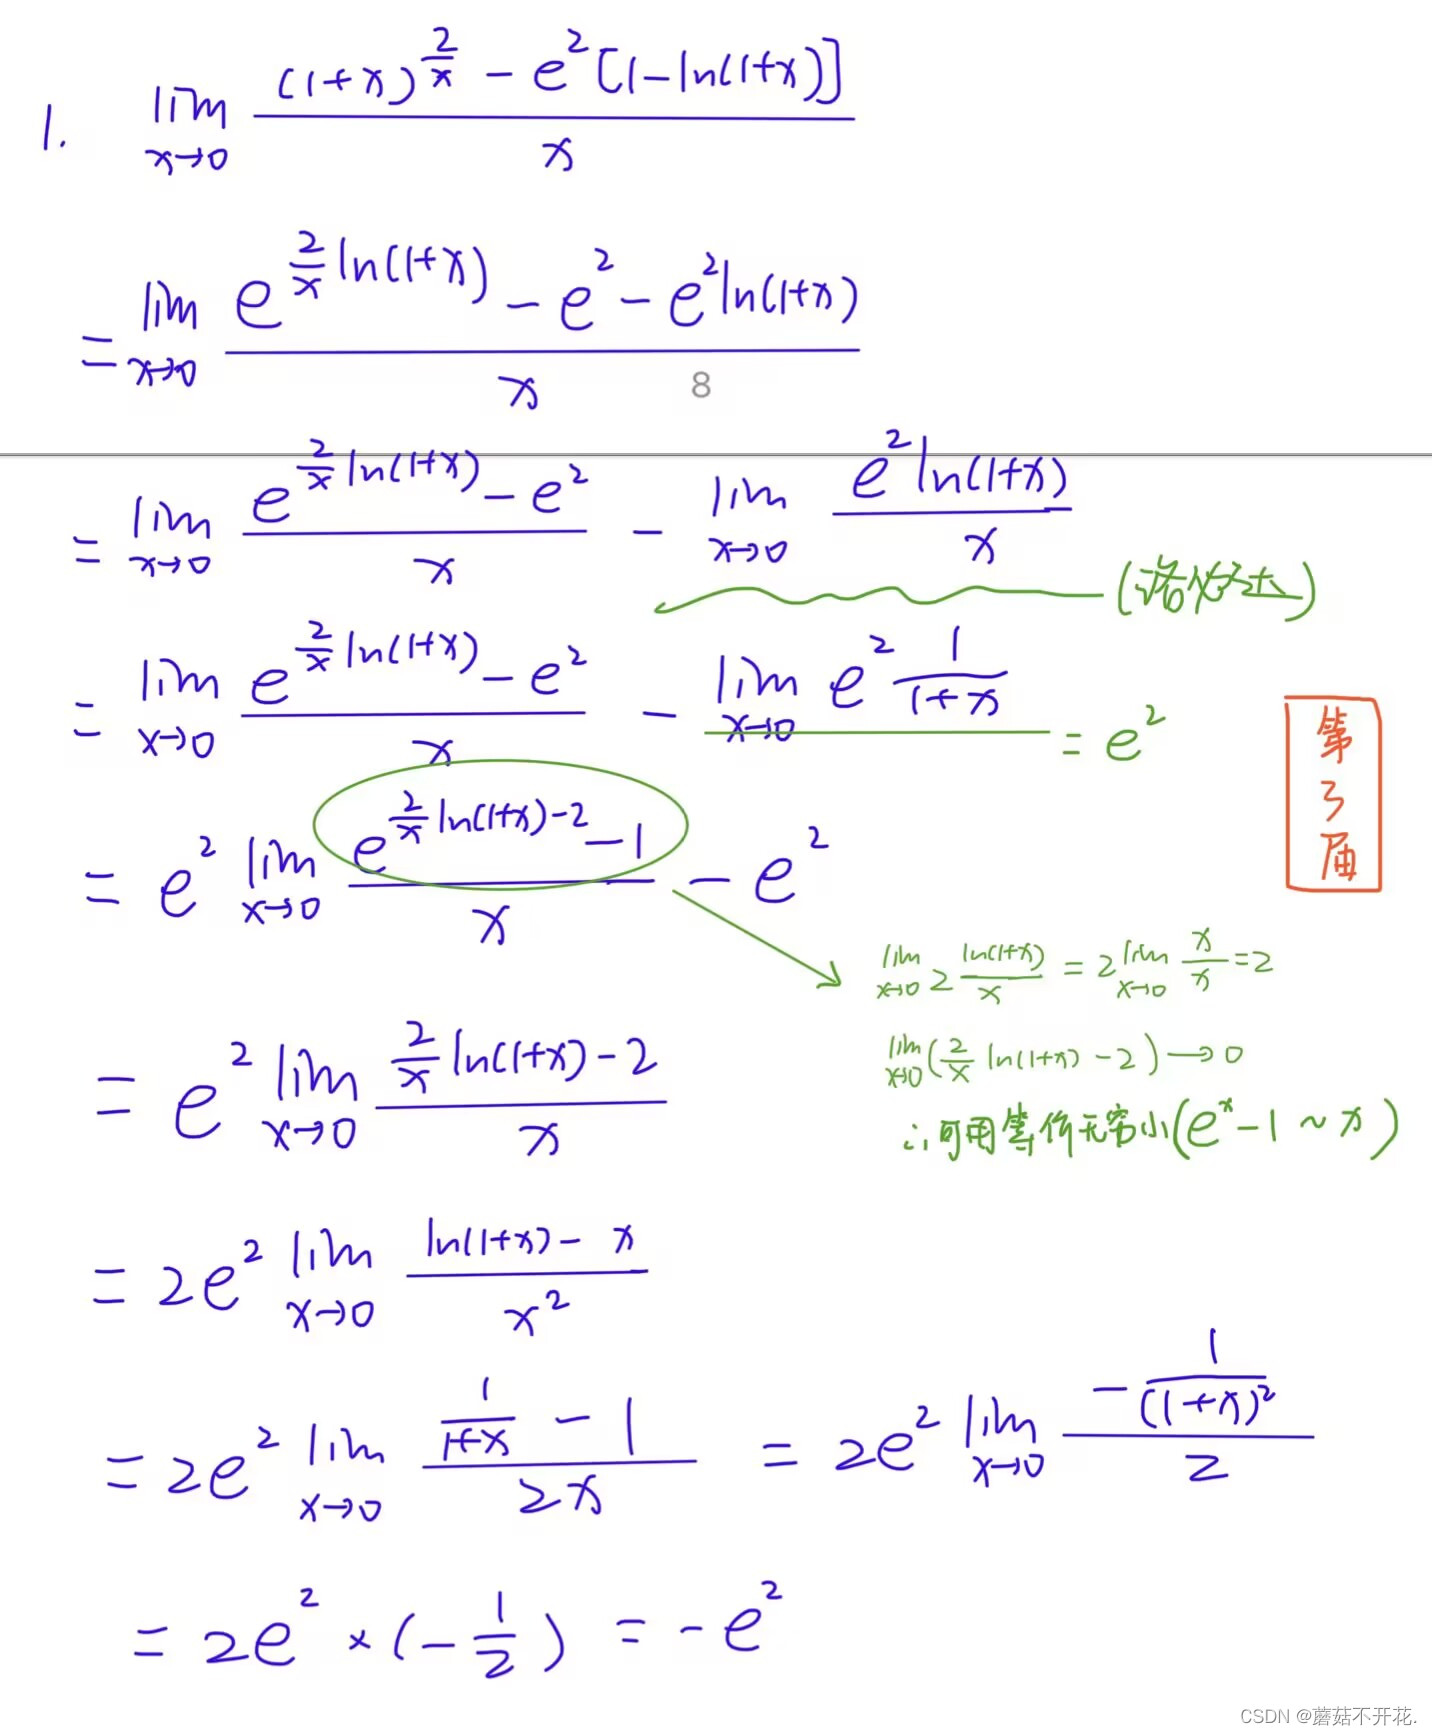 1. lim x→0 ((1+x)^(2/x) - e^2[1-ln(1+x)]) / x
= lim x→0 (e^(2/x ln(1+x)) - e^2 - e^2 ln(1+x)) / x
8
= lim x→0 (e^(2/x ln(1+x)) - e^2) / x - lim x→0 (e^2 ln(1+x)) / x
(洛必达)
= lim x→0 (e^(2/x ln(1+x)) - e^2) / x - lim x→0 e^2 1/(1+x) = e^2
第3届
= e^2 lim x→0 (e^(2/x ln(1+x)-2) - 1) / x - e^2
lim x→0 2 ln(1+x)/x = 2 lim x→0 x/x = 2
lim x→0 (2/x ln(1+x) - 2) → 0
∴可用等价无穷小(e^x - 1 ~ x)
= e^2 lim x→0 (2/x ln(1+x) - 2) / x
= 2e^2 lim x→0 (ln(1+x) - x) / x^2
= 2e^2 lim x→0 (1/(1+x) - 1) / 2x = 2e^2 lim x→0 (-1/(1+x)^2) / 2
= 2e^2 × (-1/2) = -e^2
CSDN @蘑菇不开花.